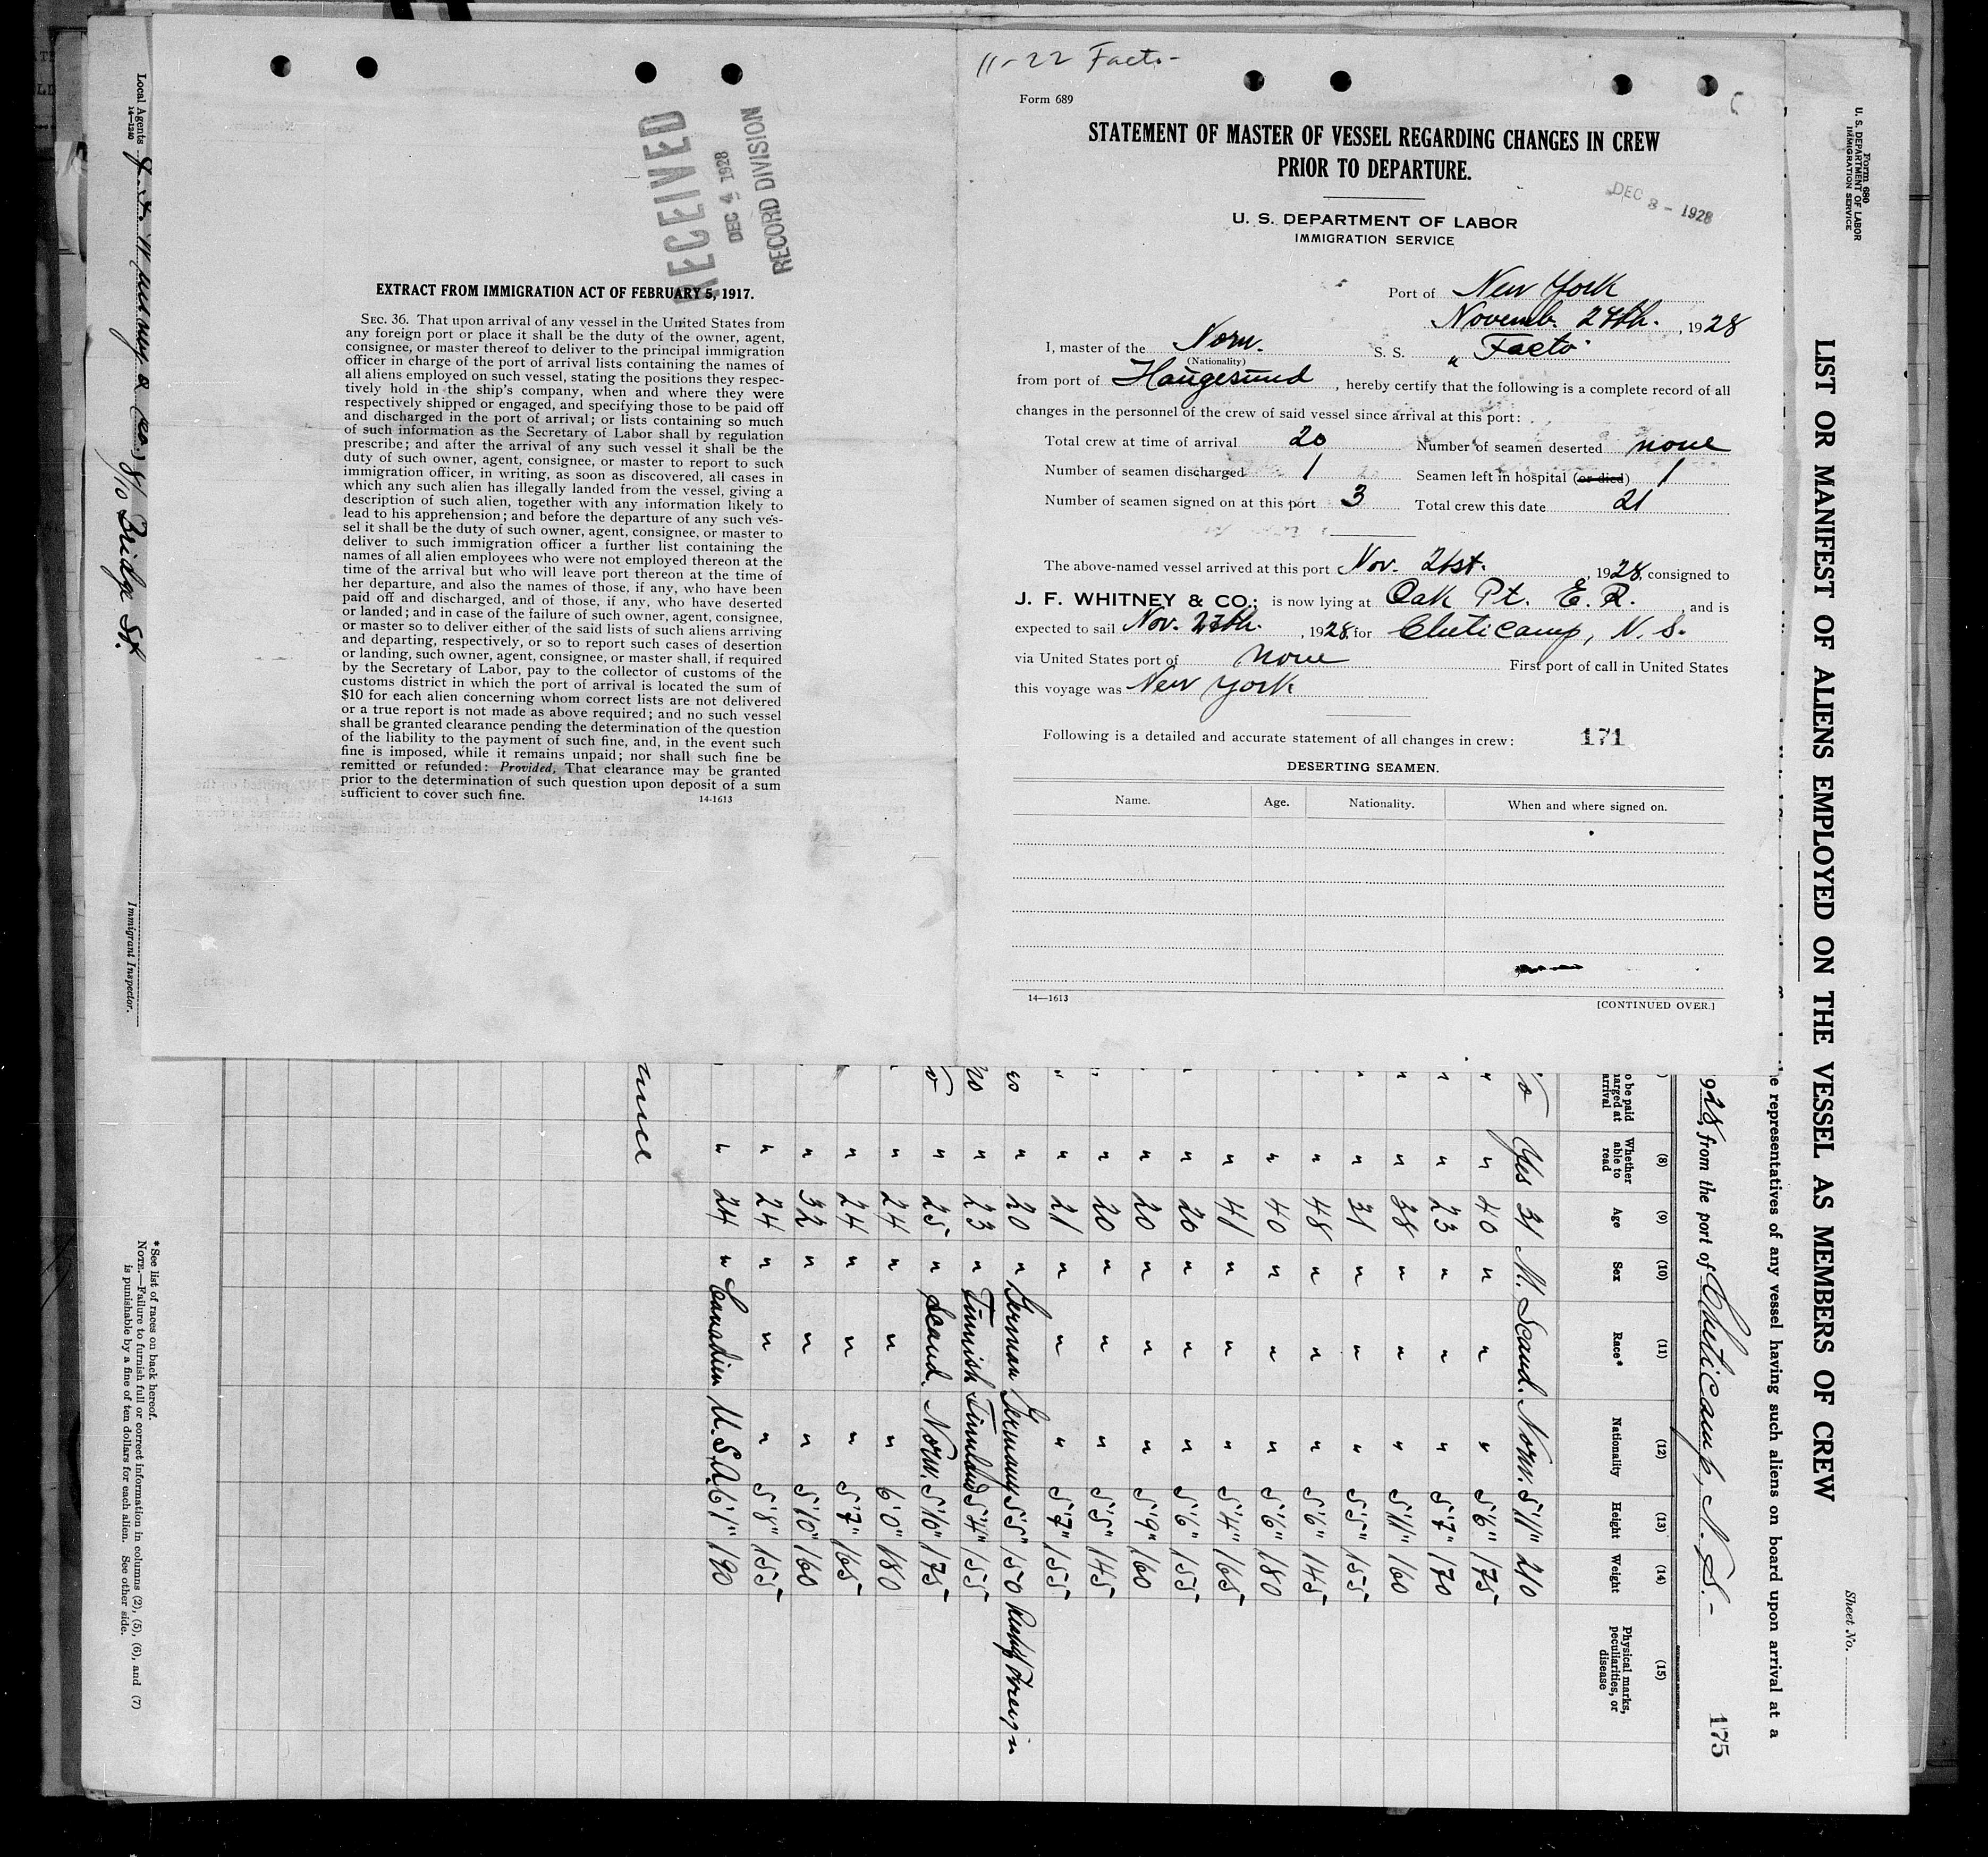 11-22 Facto -
Form 689
STATEMENT OF MASTER OF VESSEL REGARDING CHANGES IN CREW
PRIOR TO DEPARTURE.
DEC 3 - 1928
U. S. DEPARTMENT OF LABOR
IMMIGRATION SERVICE
Port of New York
Novemb. 28th., 1928
I, master of the Norw. S. S. „Facto"
(Nationality)
from port of Haugesund, hereby certify that the following is a complete record of all
changes in the personnel of the crew of said vessel since arrival at this port:
Total crew at time of arrival 20 Number of seamen deserted none
Number of seamen discharged 1 Seamen left in hospital (or died) 1
Number of seamen signed on at this port 3 Total crew this date 21
The above-named vessel arrived at this port Nov. 21st., 1928, consigned to
J. F. WHITNEY & CO.; is now lying at Oak Pt. E. R., and is
expected to sail Nov. 28th., 1928, for Cheticamp, N. S.
via United States port of none First port of call in United States
this voyage was New York
Following is a detailed and accurate statement of all changes in crew: 171
DESERTING SEAMEN.
Name. Age. Nationality. When and where signed on.
14—1613
[CONTINUED OVER.]
RECEIVED
DEC 4 1928
RECORD DIVISION
EXTRACT FROM IMMIGRATION ACT OF FEBRUARY 5, 1917.
SEC. 36. That upon arrival of any vessel in the United States from
any foreign port or place it shall be the duty of the owner, agent,
consignee, or master thereof to deliver to the principal immigration
officer in charge of the port of arrival lists containing the names of
all aliens employed on such vessel, stating the positions they respec-
tively hold in the ship's company, when and where they were
respectively shipped or engaged, and specifying those to be paid off
and discharged in the port of arrival; or lists containing so much
of such information as the Secretary of Labor shall by regulation
prescribe; and after the arrival of any such vessel it shall be the
duty of such owner, agent, consignee, or master to report to such
immigration officer, in writing, as soon as discovered, all cases in
which any such alien has illegally landed from the vessel, giving a
description of such alien, together with any information likely to
lead to his apprehension; and before the departure of any such ves-
sel it shall be the duty of such owner, agent, consignee, or master to
deliver to such immigration officer a further list containing the
names of all alien employees who were not employed thereon at the
time of the arrival but who will leave port thereon at the time of
her departure, and also the names of those, if any, who have been
paid off and discharged, and of those, if any, who have deserted
or landed; and in case of the failure of such owner, agent, consignee,
or master so to deliver either of the said lists of such aliens arriving
and departing, respectively, or so to report such cases of desertion
or landing, such owner, agent, consignee, or master shall, if required
by the Secretary of Labor, pay to the collector of customs of the
customs district in which the port of arrival is located the sum of
$10 for each alien concerning whom correct lists are not delivered
or a true report is not made as above required; and no such vessel
shall be granted clearance pending the determination of the question
of the liability to the payment of such fine, and, in the event such
fine is imposed, while it remains unpaid; nor shall such fine be
remitted or refunded: Provided, That clearance may be granted
prior to the determination of such question upon deposit of a sum
sufficient to cover such fine. 14-1613
Form 680
U. S. DEPARTMENT OF LABOR
IMMIGRATION SERVICE
Sheet No.
LIST OR MANIFEST OF ALIENS EMPLOYED ON THE VESSEL AS MEMBERS OF CREW
representatives of any vessel having such aliens on board upon arrival at a
928, from the port of Cheticamp, N. S. - 175
(8) (9) (10) (11) (12) (13) (14) (15)
o be paid
arged at
arrival
Whether able to read Age Sex Race* Nationality Height Weight Physical marks, peculiarities, or disease
Yes 31 M. Scand. Norw. 5'11" 210
" 40 " " " 5'6" 175
" 23 " " " 5'7" 170
" 38 " " " 5'11" 160
" 31 " " " 5'5" 155
" 48 " " " 5'6" 145
" 40 " " " 5'6" 180
" 41 " " " 5'4" 165
" 20 " " " 5'6" 155
" 20 " " " 5'9" 160
" 20 " " " 5'5" 145
" 21 " " " 5'7" 155
" 20 " German Germany 5'5" 150
no " 23 " Finnish Finnland 5'4" 155
" 25 " Scand. Norw. 5'10" 175
" 24 " " " 6'0" 180
" 24 " " " 5'7" 165
" 32 " " " 5'10" 160
" 24 " " " 5'8" 155
" 24 " Canadien U.S.A. 6'1" 190
Local Agents J. F. Whitney & Co., 8/10 Bridge St.
14—1240
Immigrant Inspector.
*See list of races on back hereof.
NOTE.—Failure to furnish full or correct information in columns (2), (5), (6), and (7)
is punishable by a fine of ten dollars for each alien. See other side.